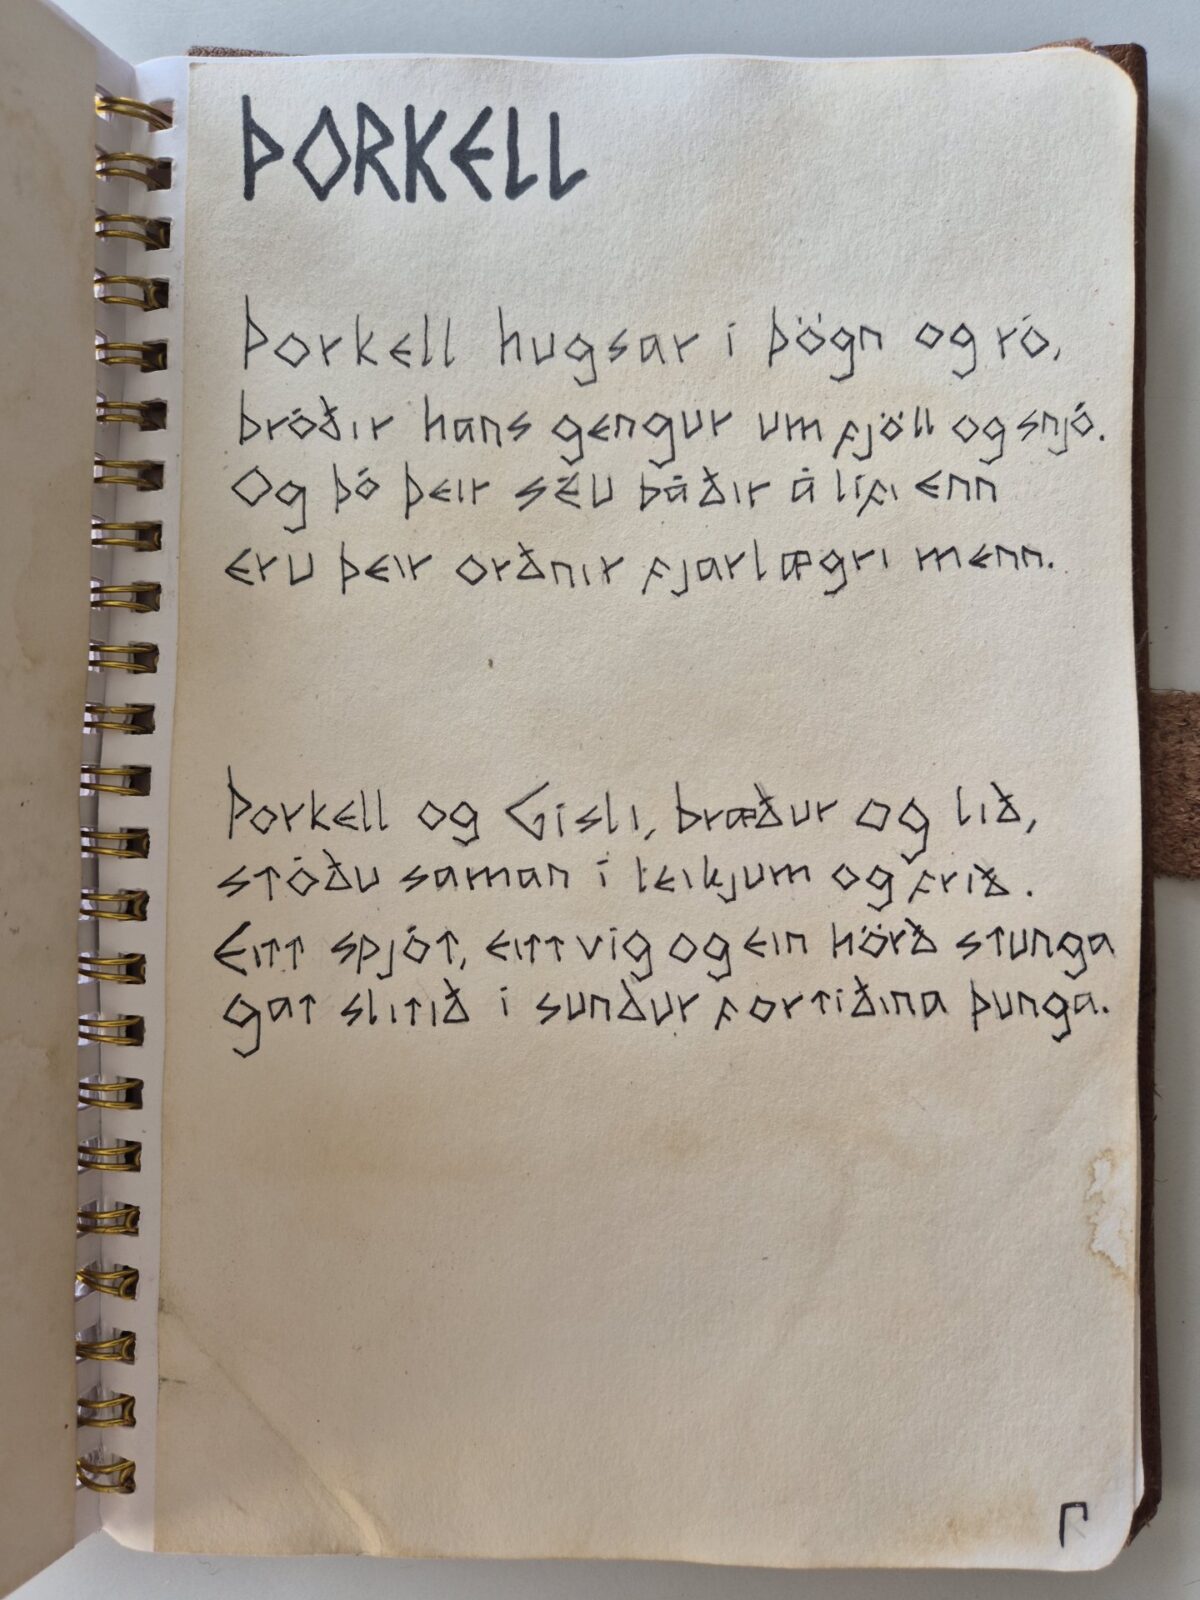 ÞORKELL
Þorkell hugsar í þögn og ró,
bróðir hans gengur um fjöll og snjó.
Og þó þeir séu báðir á lífi enn
eru þeir orðnir fjarlægri menn.
Þorkell og Gísli, bræður og lið,
stóðu saman í leikjum og frið.
Eitt spjót, eitt víg og ein hörð stunga
gat slitið í sundur fortíðina þunga.